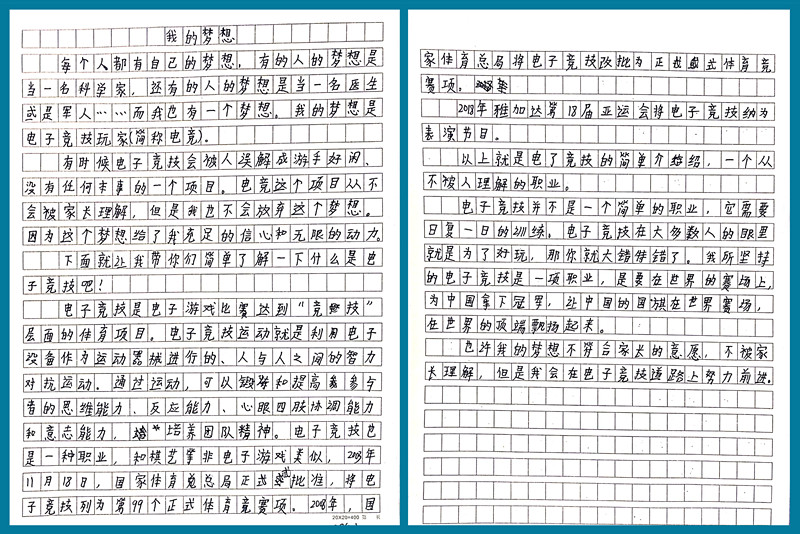 我的梦想
每个人都有自己的梦想，有的人的梦想是
当一名科学家，还有的人的梦想是当一名医生
或是军人……而我也有一个梦想。我的梦想是
电子竞技玩家(简称电竞)。
有时候电子竞技会被人误解成游手好闲、
没有任何本事的一个项目。电竞这个项目从不
会被家长理解，但是我也不会放弃这个梦想。
因为这个梦想给了我充足的信心和无限的动力。
下面就让我带你们简单了解一下什么是电
子竞技吧！
电子竞技是电子游戏比赛达到“竞技”
层面的体育项目。电子竞技运动就是利用电子
设备作为运动器械进行的、人与人之间的智力
对抗运动。通过运动，可以锻炼和提高参与
者的思维能力、反应能力、心眼四肢协调能力
和意志能力，培养团队精神。电子竞技也
是一种职业，和棋艺等非电子游戏类似，2003年
11月18日，国家体育总局正式批准，将电
子竞技列为第99个正式体育竞赛项。2008年，国
20×20=400
家体育总局将电子竞技改批为正式体育竞
赛项。
2018年雅加达第18届亚运会将电子竞技纳为
表演节目。
以上就是电子竞技的简单介绍，一个从
不被人理解的职业。
电子竞技并不是一个简单的职业，它需要
日复一日的训练。电子竞技在大多数人的眼里
就是为了好玩，那你就大错特错了。我所坚持
的电子竞技是一项职业，是要在世界的赛场上，
为中国拿下冠军，让中国的国旗在世界赛场，
在世界的顶端飘扬起来。
也许我的梦想不符合家长的意愿，不被家
长理解，但是我会在电子竞技道路上努力前进。